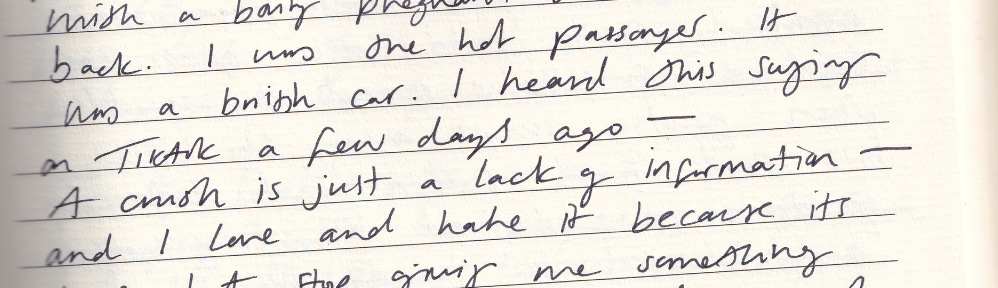 with a baby
back. I was the hot passenger. It
was a british car. I heard this saying
on TikTok a few days ago —
A crush is just a lack of information —
and I love and hate it because its
giving me something